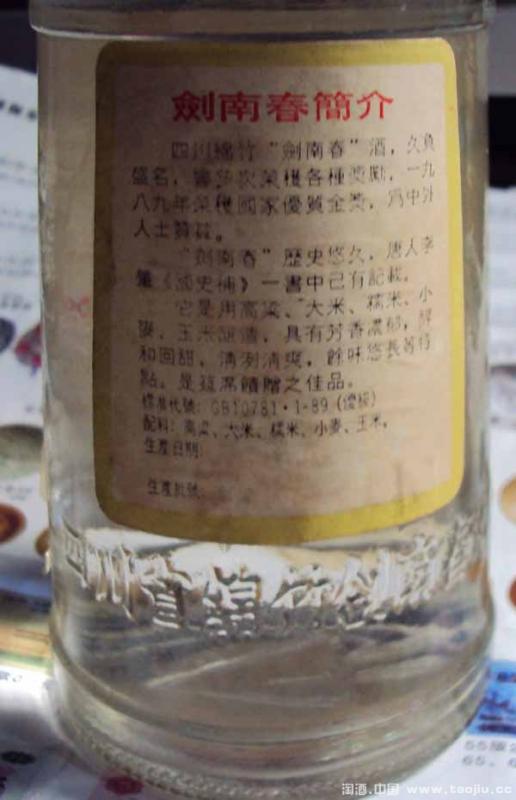 劍南春簡介
四川綿竹"劍南春"酒，久負
盛名，曾多次榮穫各種奬勵，一九
八九年榮穫國家優質金奬，爲中外
人士贊
"劍南春"歷史悠久，唐人李
肇《國史補》一書中已有記載。
它是用高粱、大米、糯米、小
麥、玉米釀造，具有芳香濃郁，醇
和回甜，清洌清爽，餘味悠長等特
點。是筵席饋贈之佳品。
標準代號：GB10781·1-89（優級）
配料：高粱、大米、糯米、小麥、玉米。
生産日期：
生産批號：
淘酒.中国 www.taojiu.cc